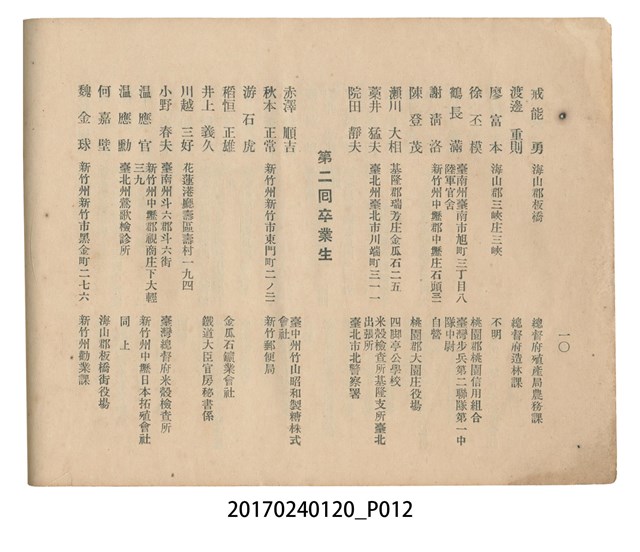 一〇
戒能勇 海山郡板橋 總督府殖產局農務課
渡邊重則 總督府造林課
廖富本 海山郡三峽庄三峽 不明
徐丕模 桃園郡桃園信用組合
鶴長滿 臺南州臺南市旭町三丁目八陸軍官舍 臺灣步兵第二聯隊第一中隊中尉
謝清洛 新竹州中壢郡中壢庄石頭三 自營
陳登茂 桃園郡大園庄役場
瀨川大相 基隆郡瑞芳庄金瓜石二五 四脚亭公學校
藁井猛夫 臺北州臺北市川端町三一一 米穀檢查所基隆支所臺北出張所
院田靜夫 臺北市北警察署
第二回卒業生
赤澤順吉 臺中州竹山昭和製糖株式會社
秋本正常 新竹州新竹市東門町二ノ二 新竹郵便局
游石虎
稻恒正雄 金瓜石鑛業會社
井上義久 鐵道大臣官房秘書係
川越三好 花蓮港廳壽區壽村一九四
小野春夫 臺南州斗六郡斗六街 臺灣總督府米穀檢查所
温應官 新竹州中壢郡觀商庄下大輕三九 新竹州中壢日本拓殖會社
温應勳 臺北州鶯歌檢診所 同上
何嘉壁 海山郡板橋街役場
魏金球 新竹州新竹市黑金町二七六 新竹州勸業課
20170240120_P012